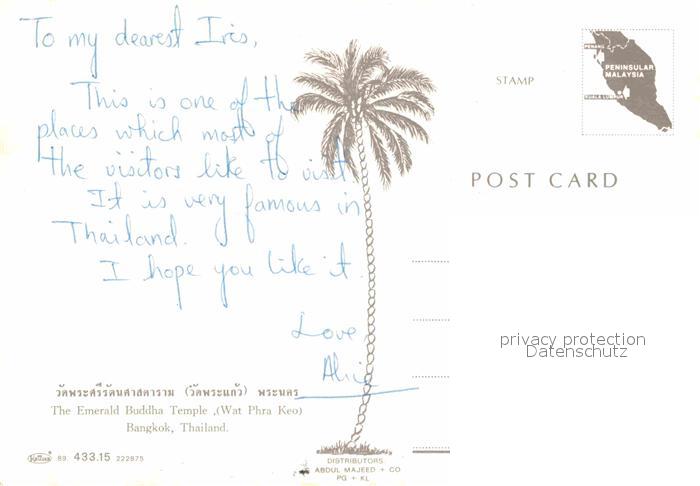 To my dearest Iris,
This is one of the
places which most of
the visitors like to visit
It is very famous in
Thailand.
I hope you like it.
Love
Alice
วัดพระศรีรัตนศาสดาราม (วัดพระแก้ว) พระนคร
The Emerald Buddha Temple ,(Wat Phra Keo)
Bangkok, Thailand.
89. 433.15 222875
DISTRIBUTORS.
ABDUL MAJEED + CO
PG + KL
STAMP
PENANG
PENINSULAR
MALAYSIA
KUALA LUMPUR
POST CARD
privacy protection
Datenschutz